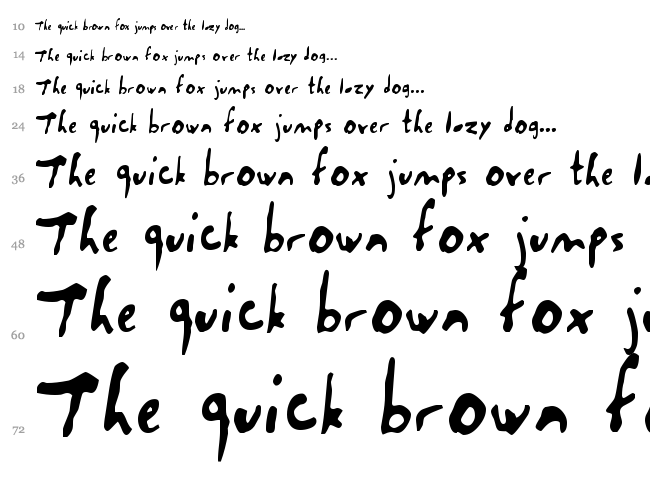 10 The quick brown fox jumps over the lazy dog...
14 The quick brown fox jumps over the lazy dog...
18 The quick brown fox jumps over the lazy dog...
24 The quick brown fox jumps over the lazy dog...
36 The quick brown fox jumps over the l
48 The quick brown fox jumps
60 The quick brown fox j
72 The quick brown f